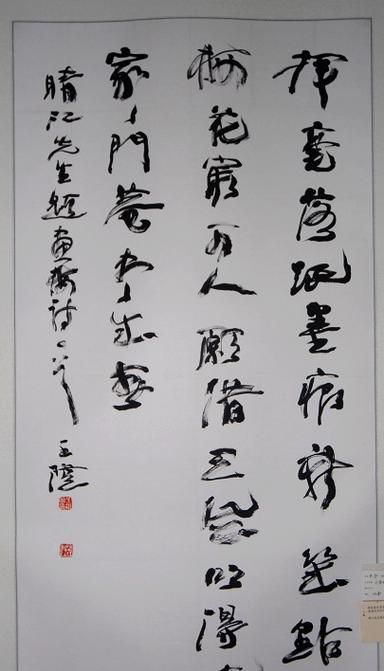 揮毫落紙墨痕新幾點
梅花最可人願借天風吹得
家々門巷尽成春
晴江先生題畫梅詩一首 王